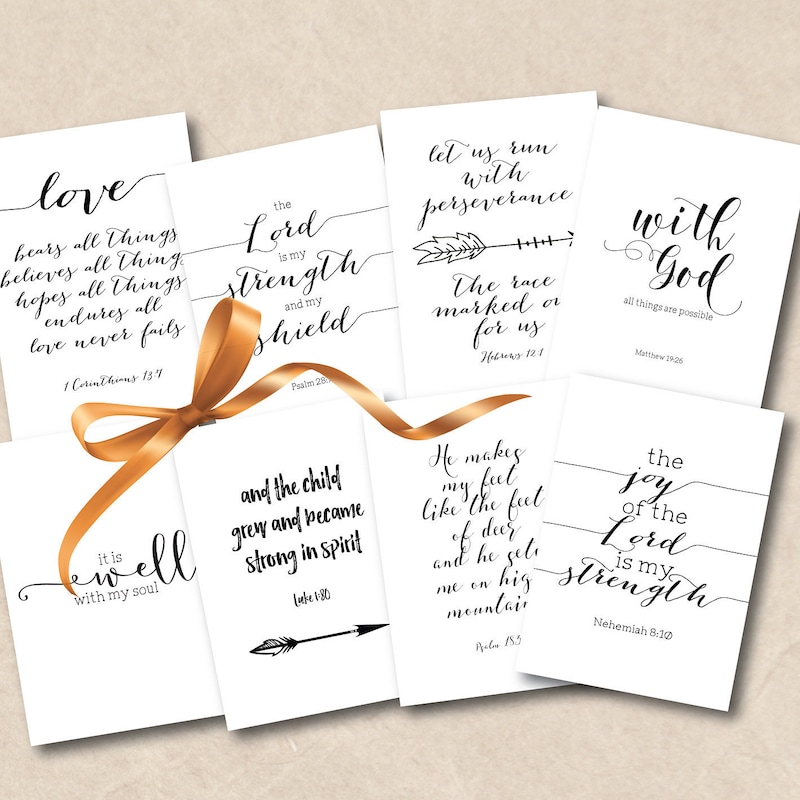 love
bears all things
believes all things
hopes all things
endures all
love never fails
1 Corinthians 13:7
the
Lord
is my
strength
and my
shield
Psalm 28:
let us run
with
perseverance
The race
marked
for us
Hebrews 12:1
with
God
all things are possible
Matthew 19:26
it is
well
with my soul
and the child
grew and became
strong in spirit
Luke 1:80
He makes
my feet
like the feet
of deer
and he sets
me on high
mountain
Psalm 18:3
the
joy
of the
Lord
is my
strength
Nehemiah 8:10